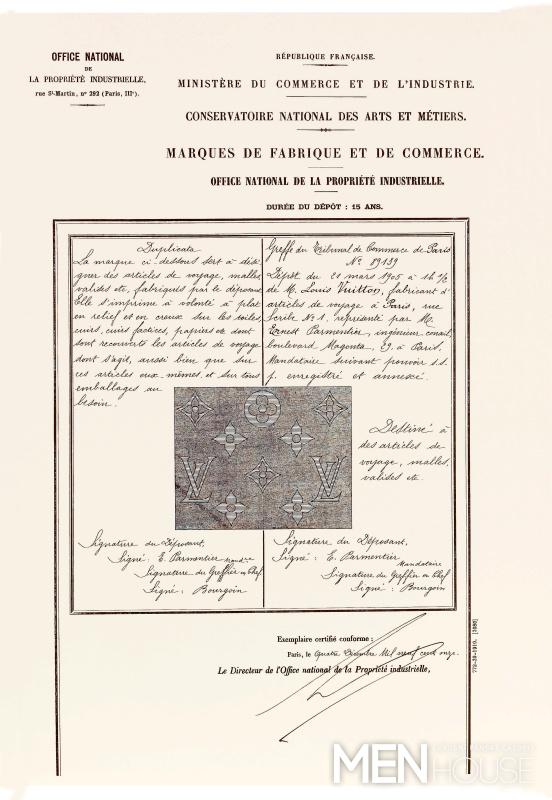 OFFICE NATIONAL
DE
LA PROPRIÉTÉ INDUSTRIELLE,
rue St-Martin, n° 292 (Paris, IIIe).
RÉPUBLIQUE FRANÇAISE.
MINISTÈRE DU COMMERCE ET DE L'INDUSTRIE.
CONSERVATOIRE NATIONAL DES ARTS ET MÉTIERS.
MARQUES DE FABRIQUE ET DE COMMERCE.
OFFICE NATIONAL DE LA PROPRIÉTÉ INDUSTRIELLE.
DURÉE DU DÉPÔT : 15 ANS.
Duplicata
La marque ci-dessous sert à dési-
gner des articles de voyage, malles,
valises etc, fabriqués par le déposant
Elle s'imprime à volonté à plat
en relief et en creux sur les toiles,
cuirs, cuirs factices, papiers etc dont
sont recouverts les articles de voyage
dont s'agit, aussi bien que sur
ces articles eux-mêmes et sur tous
emballages au
besoin.
Greffe du Tribunal de Commerce de Paris
N° 89139
Dépôt du 21 mars 1905 à 1h 1/2
de M. Louis Vuitton, fabricant d'
articles de voyage à Paris, rue
Scribe N° 1, représenté par M.
Ernest Parmentier, ingénieur-conseil,
boulevard Magenta, 29 à Paris.
Mandataire suivant pouvoir s.s.
p. enregistré et annexé.
Destiné à
des articles de
voyage, malles,
valises etc.
LV LV
Signature du Déposant,
Signé : E. Parmentier Mandre
Signature du Greffier en Chef
Signé : Bourgoin
Signature du Déposant,
Signé : E. Parmentier
Mandataire
Signature du Greffier en Chef
Signé : Bourgoin
Exemplaire certifié conforme :
Paris, le Quatre Décembre Mil neuf cent onze.
Le Directeur de l'Office national de la Propriété industrielle,
MEN
HOUSE